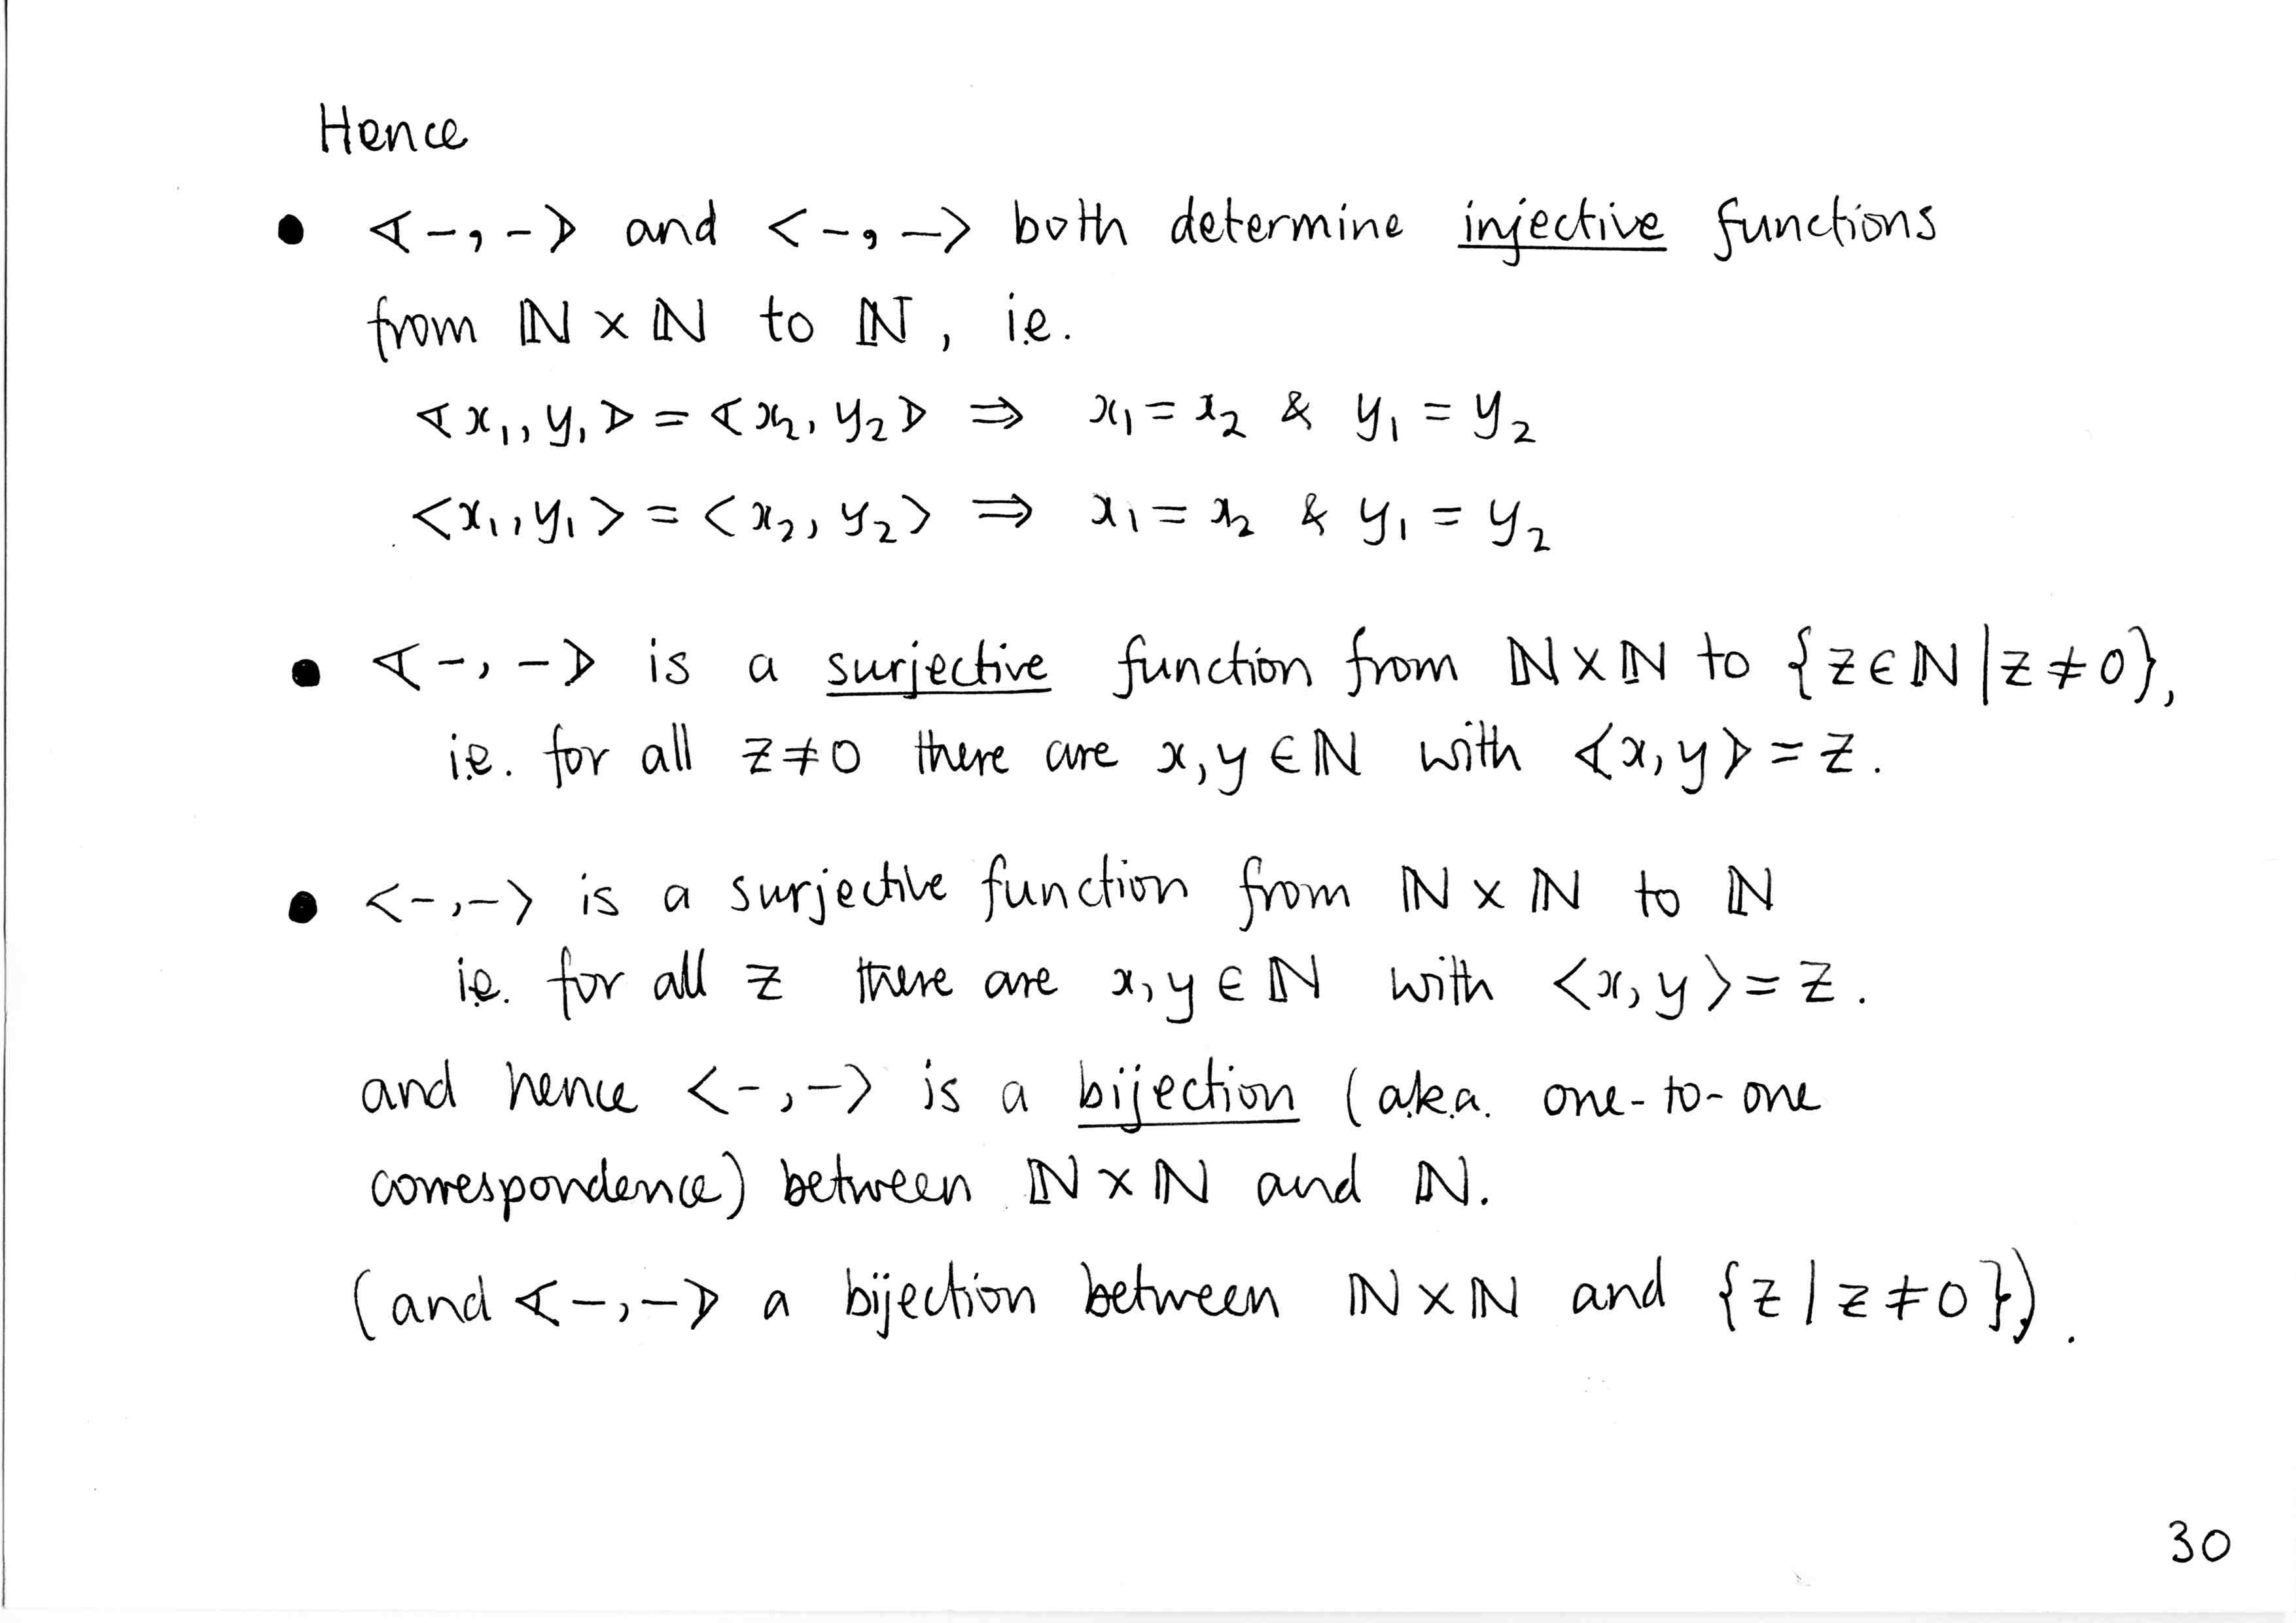 Hence
• ⦉-,-⦊ and <-,-> both determine injective functions
from ℕ × ℕ to ℕ, i.e.
⦉x₁, y₁⦊ = ⦉x₂, y₂⦊ ⇒ x₁ = x₂ & y₁ = y₂
<x₁, y₁> = <x₂, y₂> ⇒ x₁ = x₂ & y₁ = y₂
• ⦉-,-⦊ is a surjective function from ℕ×ℕ to {z∈ℕ|z≠0},
i.e. for all z≠0 there are x,y∈ℕ with ⦉x,y⦊=z.
• <-,-> is a surjective function from ℕ × ℕ to ℕ
i.e. for all z there are x,y∈ℕ with <x,y>=z.
and hence <-,-> is a bijection (a.k.a. one-to-one
correspondence) between ℕ×ℕ and ℕ.
(and ⦉-,-⦊ a bijection between ℕ×ℕ and {z|z≠0}).
30